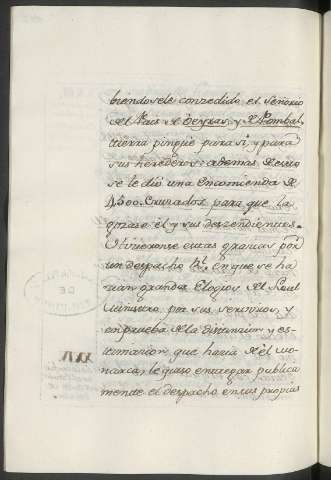 biendosele concedido el señorio
del Pais de Oeyras, y de Pombal,
tierra pingue para si, y para
sus herederos: ademas de esto
se le dió una Encomienda de
1,500. Cruzados para que la
gozase él y sus descendientes.
Obtuvieronse estas gracias por
un despacho Rl. en que se ha
zian grandes Elogios del
Ministro por sus servicios, y
en prueba de la distincion y es-
timacion que hacia de él el mo
narca, le quiso entregar publica
mente el despacho en sus propias
XXIV.
DE